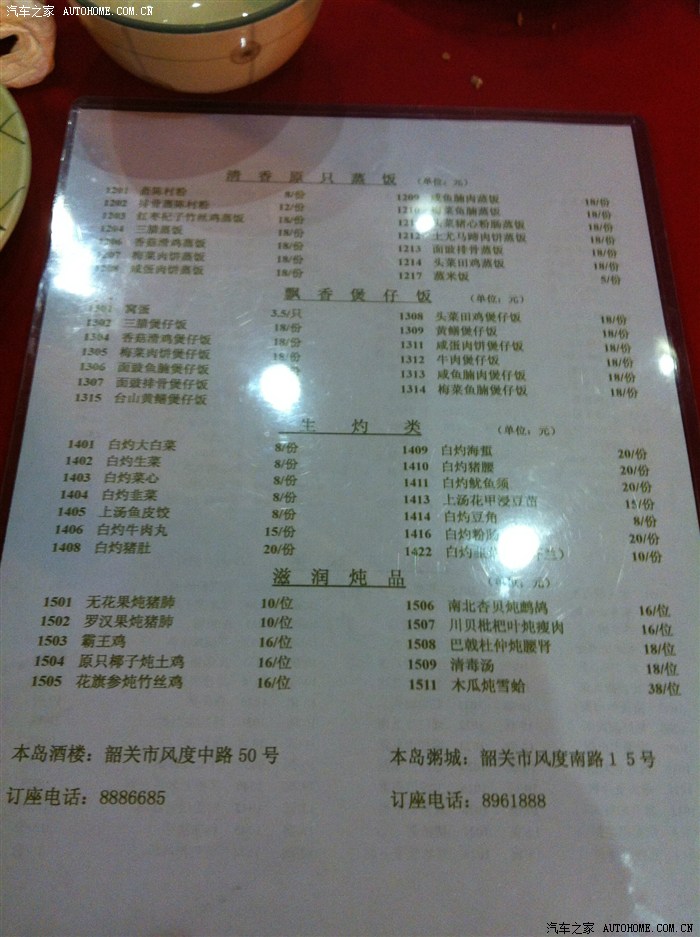 汽车之家 AUTOHOME.COM.CN
清香原只蒸饭 (单位：元)
1201 陈村粉 8/份
1202 蒸陈村粉 12/份
1203 红枣杞子竹丝鸡蒸饭 18/份
1204 三腊蒸饭 18/份
1206 香菇滑鸡蒸饭 18/份
1207 梅菜肉饼蒸饭 18/份
咸蛋肉饼蒸饭 18/份
1209 咸鱼腩肉蒸饭 18/份
梅菜鱼腩蒸饭 18/份
头菜猪心粉肠蒸饭 18/份
1212 土尤马蹄肉饼蒸饭 18/份
1213 面豉排骨蒸饭 18/份
1214 头菜田鸡蒸饭 18/份
1217 蒸米饭 5/份
飘香煲仔饭 (单位：元)
1301 窝蛋 3.5/只
1302 三腊煲仔饭 18/份
1304 香菇滑鸡煲仔饭 18/份
1305 梅菜肉饼煲仔饭 18/份
1306 面豉鱼腩煲仔饭
1307 面豉排骨煲仔饭
1315 台山黄鳝煲仔饭
1308 头菜田鸡煲仔饭 18/份
1309 黄鳝煲仔饭 18/份
1311 咸蛋肉饼煲仔饭 18/份
1312 牛肉煲仔饭 18/份
1313 咸鱼腩肉煲仔饭 18/份
1314 梅菜鱼腩煲仔饭 18/份
生灼类 (单位：元)
1401 白灼大白菜 8/份
1402 白灼生菜 8/份
1403 白灼菜心 8/份
1404 白灼韭菜 8/份
1405 上汤鱼皮饺 8/份
1406 白灼牛肉丸 15/份
1408 白灼猪肚 20/份
1409 白灼海蜇 20/份
1410 白灼猪腰 20/份
1411 白灼鱿鱼须 20/份
1413 上汤花甲浸豆苗 15/份
1414 白灼豆角 8/份
1416 白灼粉肠 20/份
1422 白灼 兰) 10/份
滋润炖品 元)
1501 无花果炖猪肺 10/位
1502 罗汉果炖猪肺 10/位
1503 霸王鸡 16/位
1504 原只椰子炖土鸡 16/位
1505 花旗参炖竹丝鸡 16/位
1506 南北杏贝炖鹧鸪 16/位
1507 川贝枇杷叶炖瘦肉 16/位
1508 巴戟杜仲炖腰肾 18/位
1509 清毒汤 18/位
1511 木瓜炖雪蛤 38/位
本岛酒楼：韶关市风度中路50号
订座电话：8886685
本岛粥城：韶关市风度南路15号
订座电话：8961888
汽车之家 AUTOHOME.COM.CN